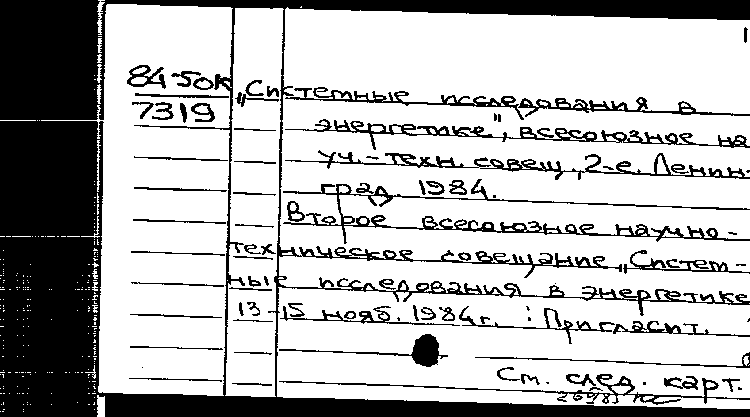 84-50к
7319
„Системные исследования в
энергетике", всесоюзное на
уч.-техн. совещ., 2-е. Ленин-
град. 1984.
Второе всесоюзное научно-
техническое совещание „Систем-
ные исследования в энергетике
13-15 нояб. 1984г. : Пригласит.
См. след. карт.